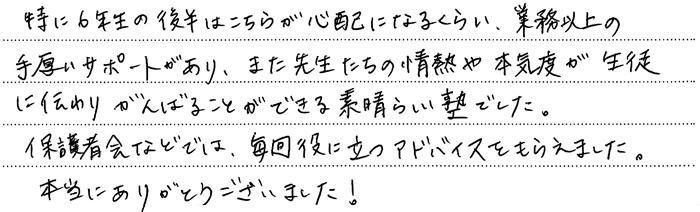 特に6年生の後半はこちらが心配になるくらい、業務以上の
手厚いサポートがあり、また先生たちの情熱や本気度が生徒
に伝わりがんばることができる素晴らしい塾でした。
保護者会などでは、毎回役に立つアドバイスをもらえました。
本当にありがとうございました！